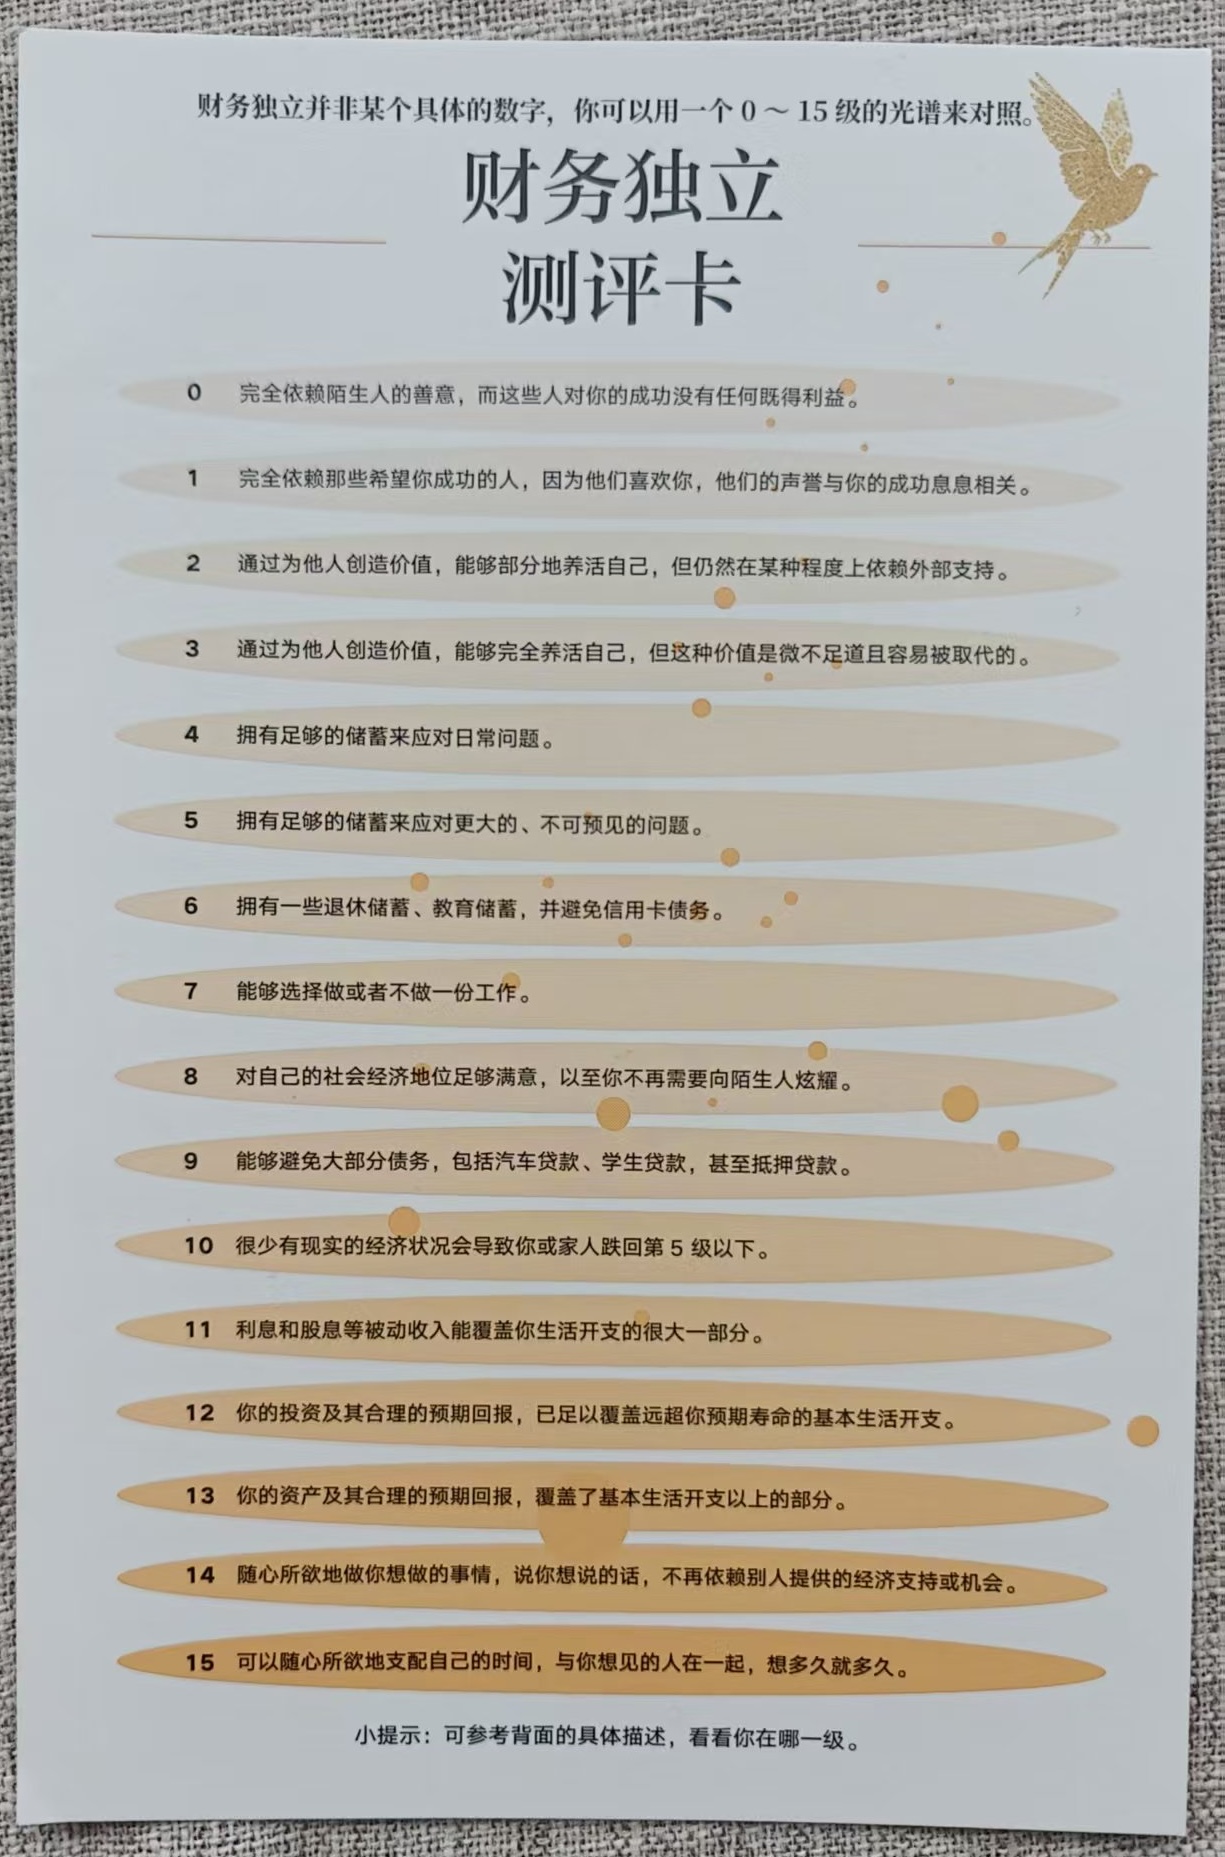 财务独立并非某个具体的数字，你可以用一个 0～15 级的光谱来对照。
财务独立
测评卡
0 完全依赖陌生人的善意，而这些人对你的成功没有任何既得利益。
1 完全依赖那些希望你成功的人，因为他们喜欢你，他们的声誉与你的成功息息相关。
2 通过为他人创造价值，能够部分地养活自己，但仍然在某种程度上依赖外部支持。
3 通过为他人创造价值，能够完全养活自己，但这种价值是微不足道且容易被取代的。
4 拥有足够的储蓄来应对日常问题。
5 拥有足够的储蓄来应对更大的、不可预见的问题。
6 拥有一些退休储蓄、教育储蓄，并避免信用卡债务。
7 能够选择做或者不做一份工作。
8 对自己的社会经济地位足够满意，以至你不再需要向陌生人炫耀。
9 能够避免大部分债务，包括汽车贷款、学生贷款，甚至抵押贷款。
10 很少有现实的经济状况会导致你或家人跌回第 5 级以下。
11 利息和股息等被动收入能覆盖你生活开支的很大一部分。
12 你的投资及其合理的预期回报，已足以覆盖远超你预期寿命的基本生活开支。
13 你的资产及其合理的预期回报，覆盖了基本生活开支以上的部分。
14 随心所欲地做你想做的事情，说你想说的话，不再依赖别人提供的经济支持或机会。
15 可以随心所欲地支配自己的时间，与你想见的人在一起，想多久就多久。
小提示：可参考背面的具体描述，看看你在哪一级。